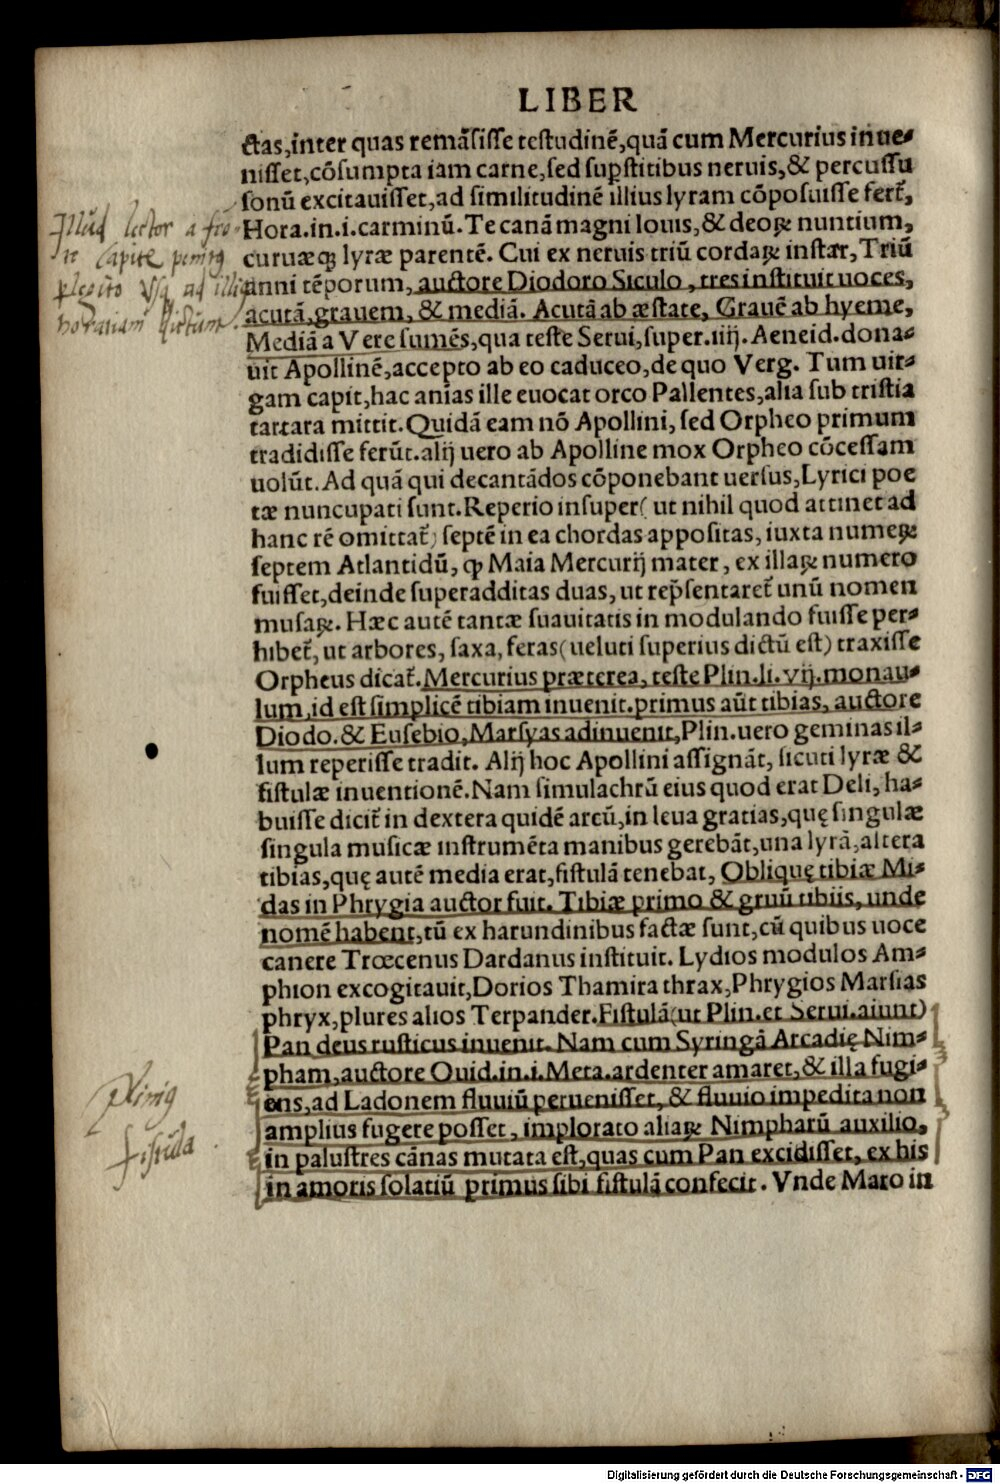 LIBER
ctas,inter quas remāsisse testudinē,quā cum Mercurius inue-
nisset,cōsumpta iam carne,sed supstitibus neruis,& percussu
sonū excitauisset,ad similitudinē illius lyram cōposuisse fert̄,
Hora.in.i.carminū.Te canā magni Iouis,& deoꝝ nuntium,
curuæq; lyræ parentē. Cui ex neruis triū cordaꝝ instar, Triū
anni tēporum, auctore Diodoro Siculo, tres instituit uoces,
acutā,grauem, & mediā. Acutā ab æstate, Grauē ab hyeme,
Mediā a Vere sumēs,qua teste Serui,super.iiij. Aeneid.dona-
uit Apollinē,accepto ab eo caduceo,de quo Verg. Tum uir-
gam capit,hac anias ille euocat orco Pallentes,alia sub tristia
tartara mittit.Quidā eam nō Apollini, sed Orpheo primum
tradidisse ferūt.alij uero ab Apolline mox Orpheo cōcessam
uolūt. Ad quā qui decantādos cōponebant uersus,Lyrici poe
tæ nuncupati sunt.Reperio insuper( ut nihil quod attinet ad
hanc rē omittat̄) septē in ea chordas appositas, iuxta numeꝝ
septem Atlantidū, ꝙ Maia Mercurij mater, ex illaꝝ numero
fuisset,deinde superadditas duas, ut rep̄sentaret̄ unū nomen
musaꝝ. Hæc autē tantæ suauitatis in modulando fuisse per-
hibet̄, ut arbores, saxa, feras(ueluti superius dictū est) traxisse
Orpheus dicat̄.Mercurius præterea, teste Plin.li.vij.monau-
lum,id est simplicē tibiam inuenit.primus aūt tibias, auctore
Diodo.& Eusebio,Marsyas adinuenit,Plin.uero geminas il-
lum reperisse tradit. Alij hoc Apollini assignāt, sicuti lyræ &
fistulæ inuentionē.Nam simulachrū eius quod erat Deli, ha-
buisse dicit̄ in dextera quidē arcū,in leua gratias,quę singulæ
singula musicæ instrumēta manibus gerebāt,una lyrā,altera
tibias,quę autē media erat,fistulā tenebat, Obliquę tibiæ Mi-
das in Phrygia auctor fuit. Tibiæ primo & gruū tibiis, unde
nomē habent,tū ex harundinibus factæ sunt,cū quibus uoce
canere Trœcenus Dardanus instituit. Lydios modulos Am-
phion excogitauit,Dorios Thamira thrax,Phrygios Marsias
phryx,plures alios Terpander.Fistulā(ut Plin.et Serui.aiunt)
Pan deus rusticus inuenit. Nam cum Syringā Arcadię Nim-
pham,auctore Ouid.in.i.Meta.ardenter amaret,& illa fugi-
ens,ad Ladonem fluuiū peruenisset, & fluuio impedita non
amplius fugere posset, implorato aliaꝝ Nimpharū auxilio,
in palustres cānas mutata est,quas cum Pan excidisset, ex his
in amoris solatiū primus sibi fistulā confecit. Vnde Maro in
Illud lector a
capite
ad
horatiam dictum
fistula
Digitalisierung gefördert durch die Deutsche Forschungsgemeinschaft - DFG